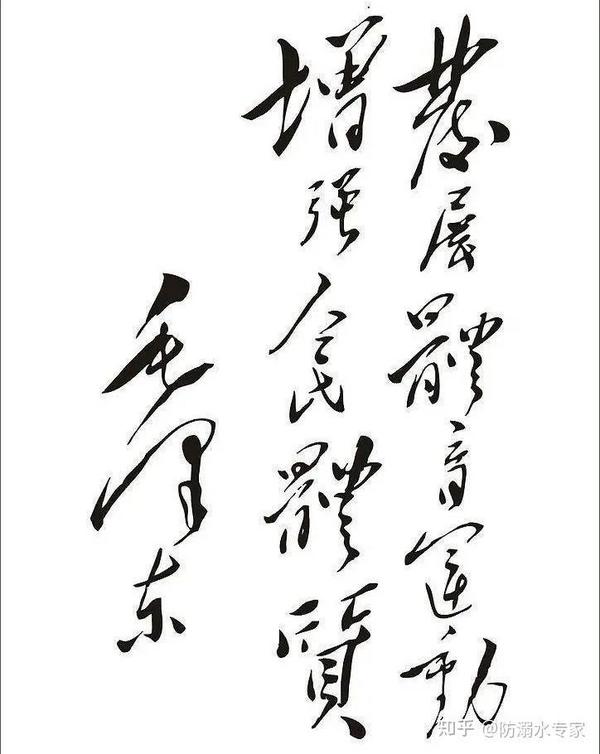 發展體育運動
增强人民體質
毛泽东
知乎 @防溺水专家